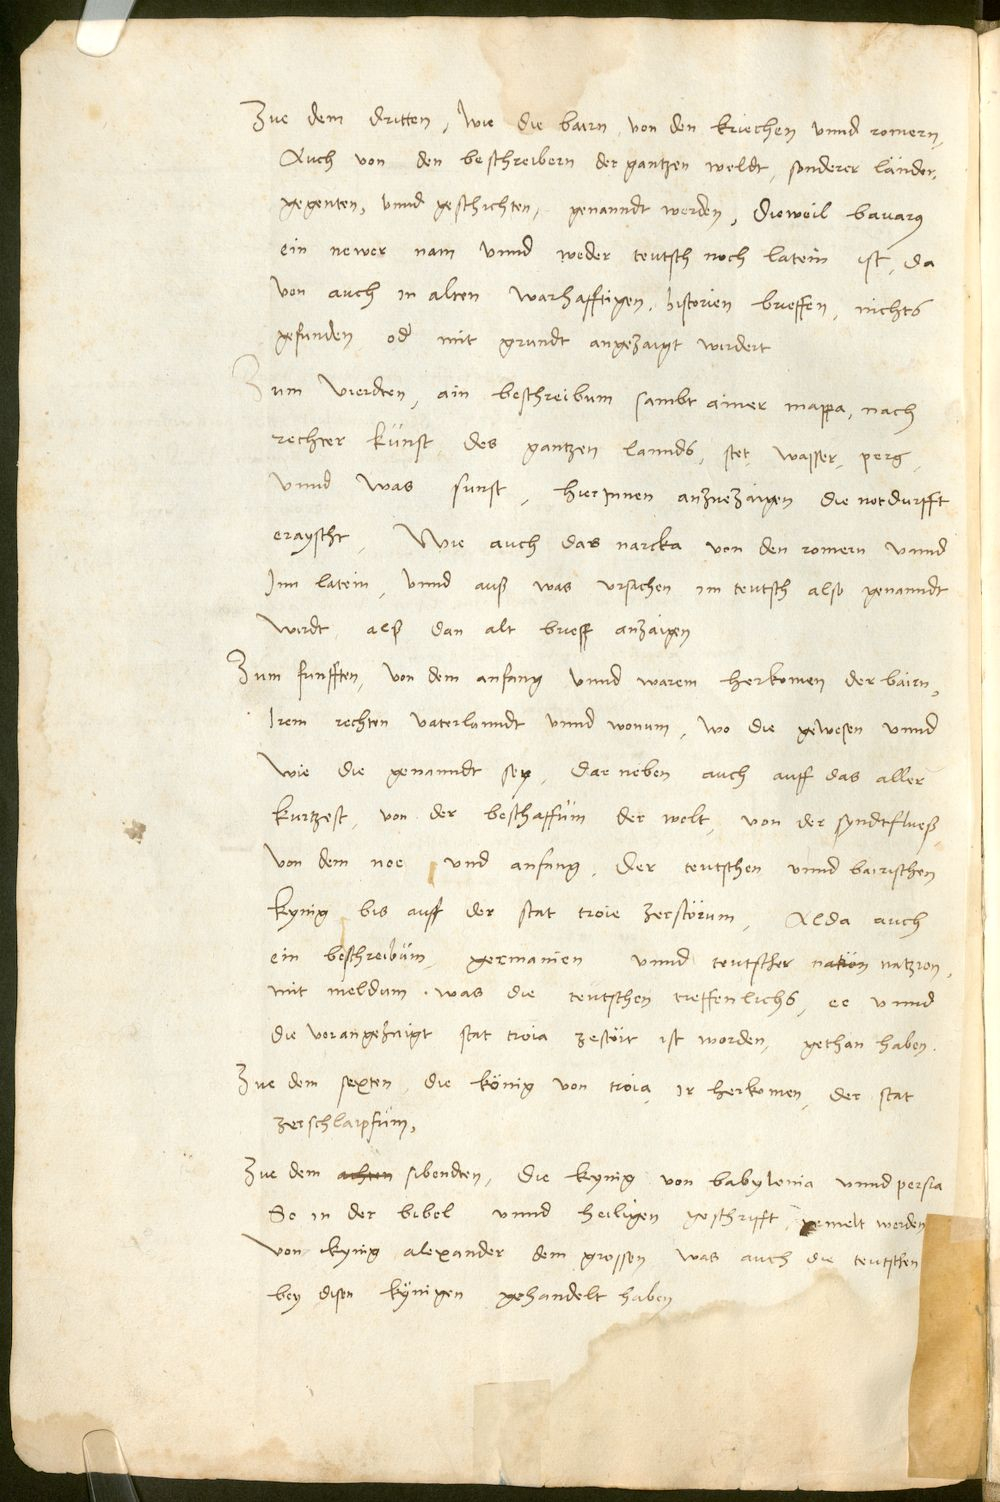 Zue dem dritten, wie die bairn, von den kriechen unnd romern,
Auch von den beschreibern der gantzen weldt, sonderer länder,
gegenten, unnd geschichten, genanndt werden, dieweil bavarus
ein newer nam unnd weder teutsch noch latein ist, da
von auch in alten warhafftigen, historien brieffen, nichts
gefunden od mit grundt angezaigt wirdert
Zum vierdten, ain beschreibum sambt ainer mappa, nach
rechter künst des gantzen lannds, stet, wasser, perg,
unnd was sunst, hierinnen anzuezaigen die notdurfft
erayscht, Wie auch das narcka von den romern unnd
Inn latein, unnd auß was ursachen im teutsch also genanndt
wirdt, alß dan alt brieff anzaigen
Zum funfften, von dem anfang unnd warem herkomen der bairn,
Irem rechten vaterlanndt unnd wonum, wo die gewesen unnd
wie die genanndt sey, dar neben auch auff das aller
kurtzest, von der beschaffüm der welt, von der syndtflueß,
von dem noe und anfang, der teutschen unnd bairischen
kynig bis auff der stat troie zerstörum, Alda auch
ein beschreibüm, germanien unnd teutscher nation natzion,
mit meldum was die teutschen treffenlichs, ee unnd
die vorangezaigt stat troia zestört ist worden, gethan haben.
Zue dem sexten, die könig von troia, ir herkomen, der stat
zerschlaipfüm,
Zue dem achten sibendten, die kynig von babylonia unnd persia
So in der bibel unnd heiligen geschrifft, gemelt werden
von kynig alexander dem grossen was auch die teutschen
bey disen kynigen gehandelt haben